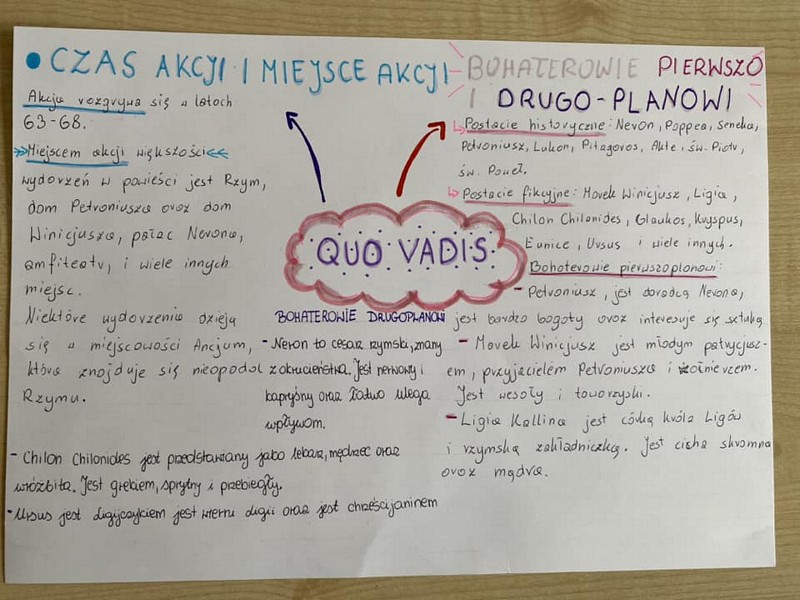 • CZAS AKCJI I MIEJSCE AKCJI
Akcja rozgrywa się w latach
63-68.
Miejscem akcji większości
wydarzeń w powieści jest Rzym,
dom Petroniusza oraz dom
Winicjusza, pałac Nerona,
amfiteatr, i wiele innych
miejsc.
Niektóre wydarzenia dzieją
się w miejscowości Ancjum,
która znajduje się nieopodal
Rzymu.
BOHATEROWIE PIERWSZO
I DRUGO-PLANOWI
Postacie historyczne: Neron, Poppea, Seneka,
Petroniusz, Lukan, Pitagoros, Akte, św. Piotr,
św. Paweł.
Postacie fikcyjne: Marek Winicjusz, Ligia,
Chilon Chilonides, Glaukos, Kryspus,
Eunice, Ursus i wiele innych.
QUO VADIS
Bohaterowie pierwszoplanowi:
- Petroniusz, jest doradcą Nerona,
jest bardzo bogaty oraz interesuje się sztuką
- Marek Winicjusz jest młodym patrycjusz-
em, przyjacielem Petroniusza i żołnierzem.
Jest wesoły i towarzyski.
- Ligia Kallina jest córką króla Ligów
i rzymską zakładniczką. Jest cicha skromna
oraz mądra.
BOHATEROWIE DRUGOPLANOWI
- Neron to cesarz rzymski, znany
z okrucieństwa. Jest nerwowy i
kapryśny oraz łatwo ulega
wpływom.
- Chilon Chilonides jest przedstawiany jako lekarz, mędrzec oraz
wróżbita. Jest grekiem, sprytny i przebiegły.
- Ursus jest ligijczykiem jest wierny ligii oraz jest chrześcijaninem